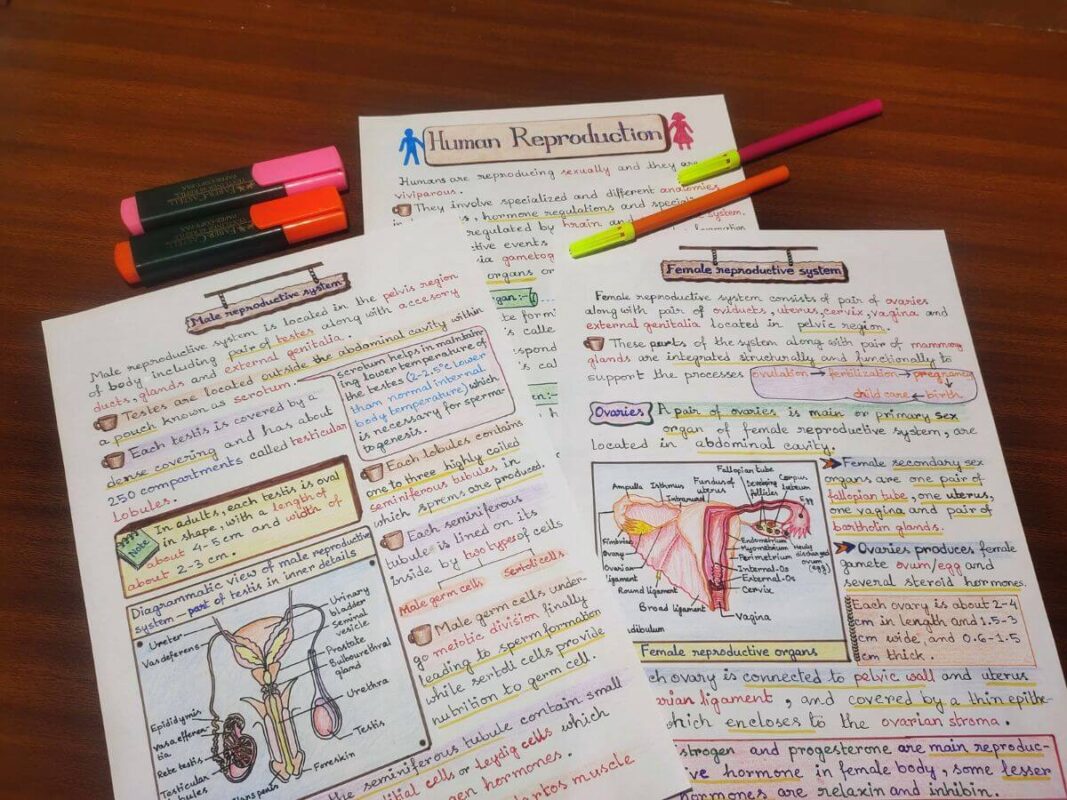 Human Reproduction
Humans are reproducing sexually and they are
viviparous.
They involve specialized and different anatomies
, hormone regulations and
regulated by brain and system.
events
gametog
organs or
gan:-
Male reproductive system
Male reproductive system is located in the pelvis region
of body, including pair of testes along with accesory
ducts, glands and external genitalia.
Testes are located outside the abdominal cavity within
a pouch known as scrotum.
scrotum helps in maintain-
ing lower temperature of
the testes (2-2.5°C lower
than normal internal
body temperature) which
is necessary for sperma-
togenesis.
Each testis is covered by a
dense covering and has about
250 compartments called testicular
lobules.
Note
In adults, each testis is oval
in shape, with a length of
about 4-5 cm and width of
about 2-3 cm.
Each lobules contains
one to three highly coiled
seminiferous tubules in
which sperms are produced.
Each seminiferous
tubule is lined on its
inside by two types of cells
Male germ cells
Sertoli cells
Male germ cells under-
go meiotic division finally
leading to sperm formation
while sertoli cells provide
nutrition to germ cell.
Diagrammatic view of male reproductive
system - part of testis in inner details
Ureter
Vas deferens
Epididymis
Vasa efferen-
tia
Rete testis
Testicular
Urinary
bladder
Seminal
vesicle
Prostate
Bulbourethral
gland
Urethra
Testis
Foreskin
Glans penis
the seminiferous tubule contain small
cells or leydig cells which
hormones.
dartos muscle
Female reproductive system
Female reproductive system consists of pair of ovaries
along with pair of oviducts, uterus, cervix, vagina and
external genitalia located in pelvic region.
These parts of the system along with pair of mammary
glands are integrated structurally and functionally to
support the processes ovulation → fertilization → pregnancy
child care ← birth
Ovaries A pair of ovaries is main or primary sex
organ of female reproductive system, are
located in abdominal cavity.
Fallopian tube
Ampulla
Isthmus
Fundus of
uterus
Intramural
Developing
follicles
Corpus
luteum
Egg
Fimbriae
Ovary
Ovarian
ligament
Round ligament
Broad ligament
Endometrium
Myometrium
Perimetrium
Internal-Os
External-Os
Cervix
Vagina
Newly
discharged
ovum
(egg)
Female reproductive organs
Female secondary sex
organs are one pair of
fallopian tube, one uterus,
one vagina and pair of
bartholin glands.
Ovaries produces female
gamete ovum/egg and
several steroid hormones.
Each ovary is about 2-4
cm in length and 1.5-3
cm wide, and 0.6-1.5
cm thick.
ovary is connected to pelvic wall and uterus
ligament, and covered by a thin epithe-
which encloses to the ovarian stroma.
and progesterone are main reproduc-
hormone in female body, some lesser
hormones are relaxin and inhibin.
FABER-CASTELL
FABER-CASTELL